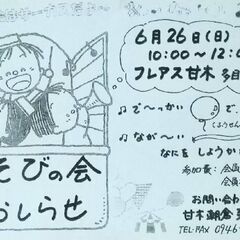 そびの会
おしらせ
6月26日(日)
10:00～12:0
フレアス甘木 多目
♪で～っかい
♪なが～い
なにを しようか
参加費: 会員
会員
お問い合わ
甘木朝倉
TEL・FAX 0946